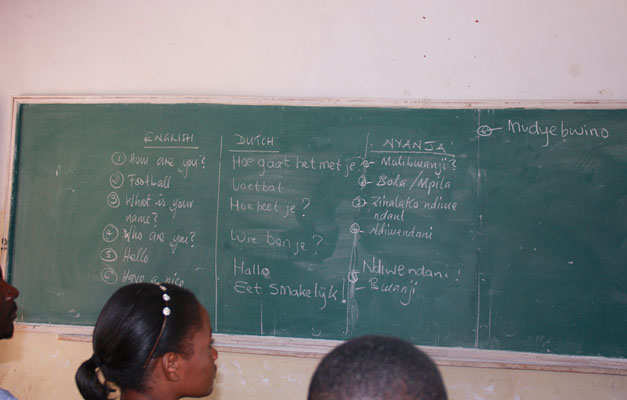 ENGLISH
① How are you?
② Football
③ What is your
name?
④ Who are you?
⑤ Hello
⑥ Have a nice
DUTCH
Hoe gaat het met je?
Voetbal
Hoe heet je?
Wie ben je?
Hallo
Eet Smakelijk!
NYANJA
① Mulibwanji?
② Bola/Mpila
③ Zinalako ndiwe
ndani
④ Ndiwendani
Ndiwendani!
⑤ Bwanji
⑥ Mudyebwino